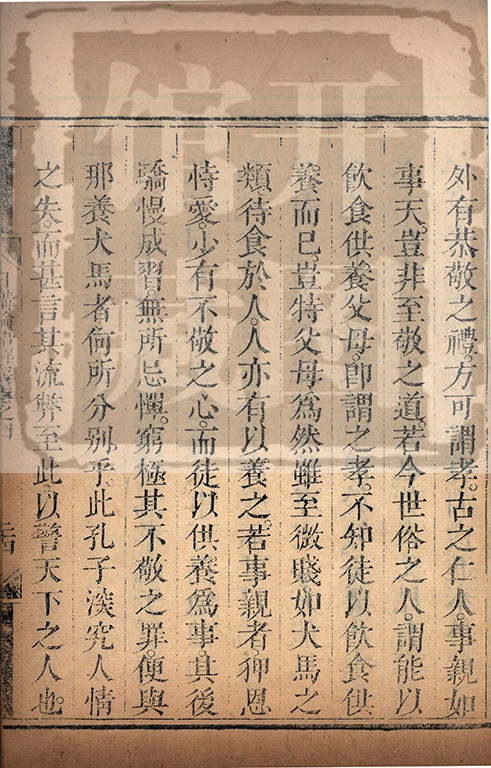 外有恭敬之禮。方可謂孝。古之仁人。事親如
事天。豈非至敬之道。若今世俗之人。謂能以
飲食供養父母。卽謂之孝。不知徒以飲食供
養而已。豈特父母爲然。雖至微賤如犬馬之
類。待食於人。人亦有以養之。若事親者。狎恩
恃愛。少有不敬之心。而徒以供養爲事。其後
驕慢成習。無所忌憚。窮極其不敬之罪。便與
那養犬馬者何所分別乎。此孔子深究人情
之失。而甚言其流弊至此。以警天下之人也。